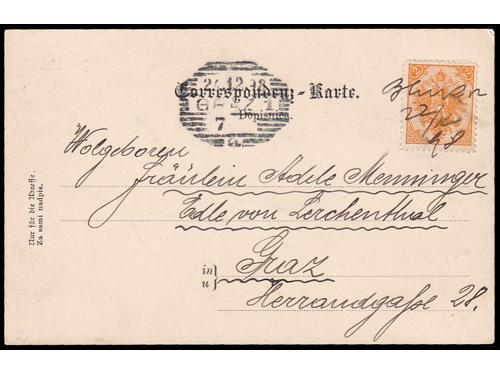 24 12 98
GRAZ 1
7
Correspondenz-Karte.
Dopisnica.
22/12
98
Wolgeboren
Fräulein Adele Menninger
Edle von Lerchenthal
in
u
Graz
Herrandgaße 28.
Nur für die Adresse.
Za sami nadpis.